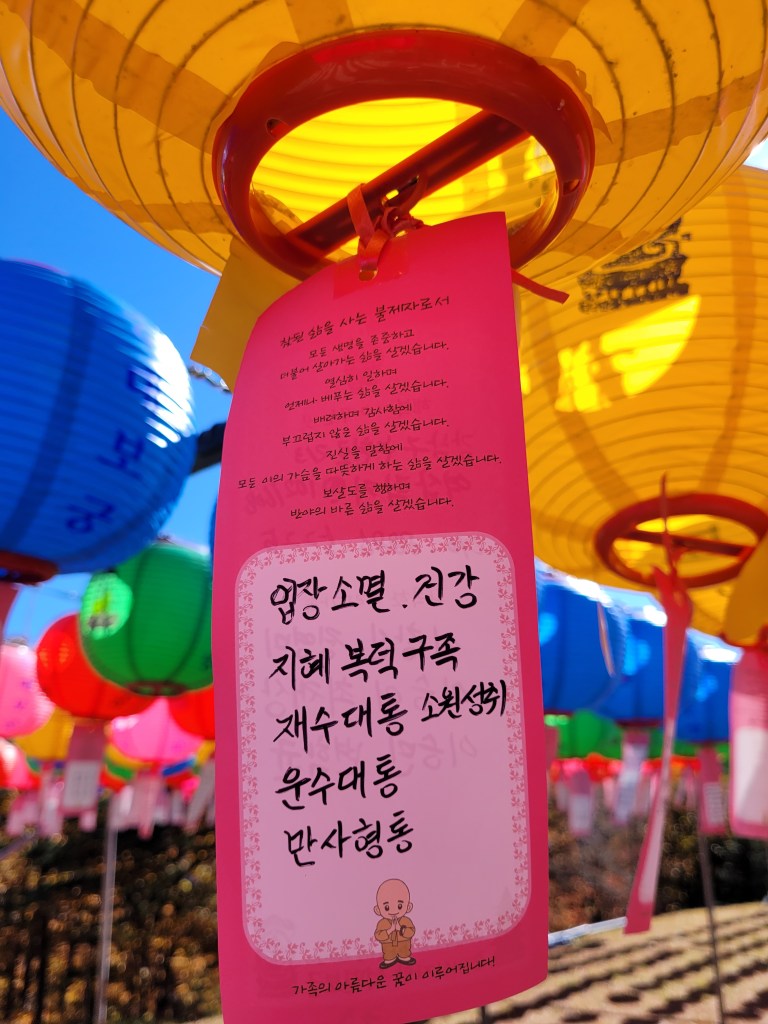 참된 삶을 사는 불제자로서
모든 생명을 존중하고
더불어 살아가는 삶을 살겠습니다.
열심히 일하며
언제나 베푸는 삶을 살겠습니다.
배려하며 감사함에
부끄럽지 않은 삶을 살겠습니다.
진실을 말함에
모든 이의 가슴을 따뜻하게 하는 삶을 살겠습니다.
보살도를 행하며
반야의 바른 삶을 살겠습니다.
업장소멸 . 건강
지혜 복덕구족
재수대통 소원성취
운수대통
만사형통
가족의 아름다운 꿈이 이루어집니다!